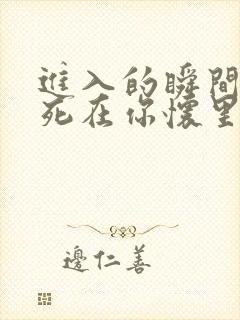 進入的瞬間
死在你懷里
邊仁善